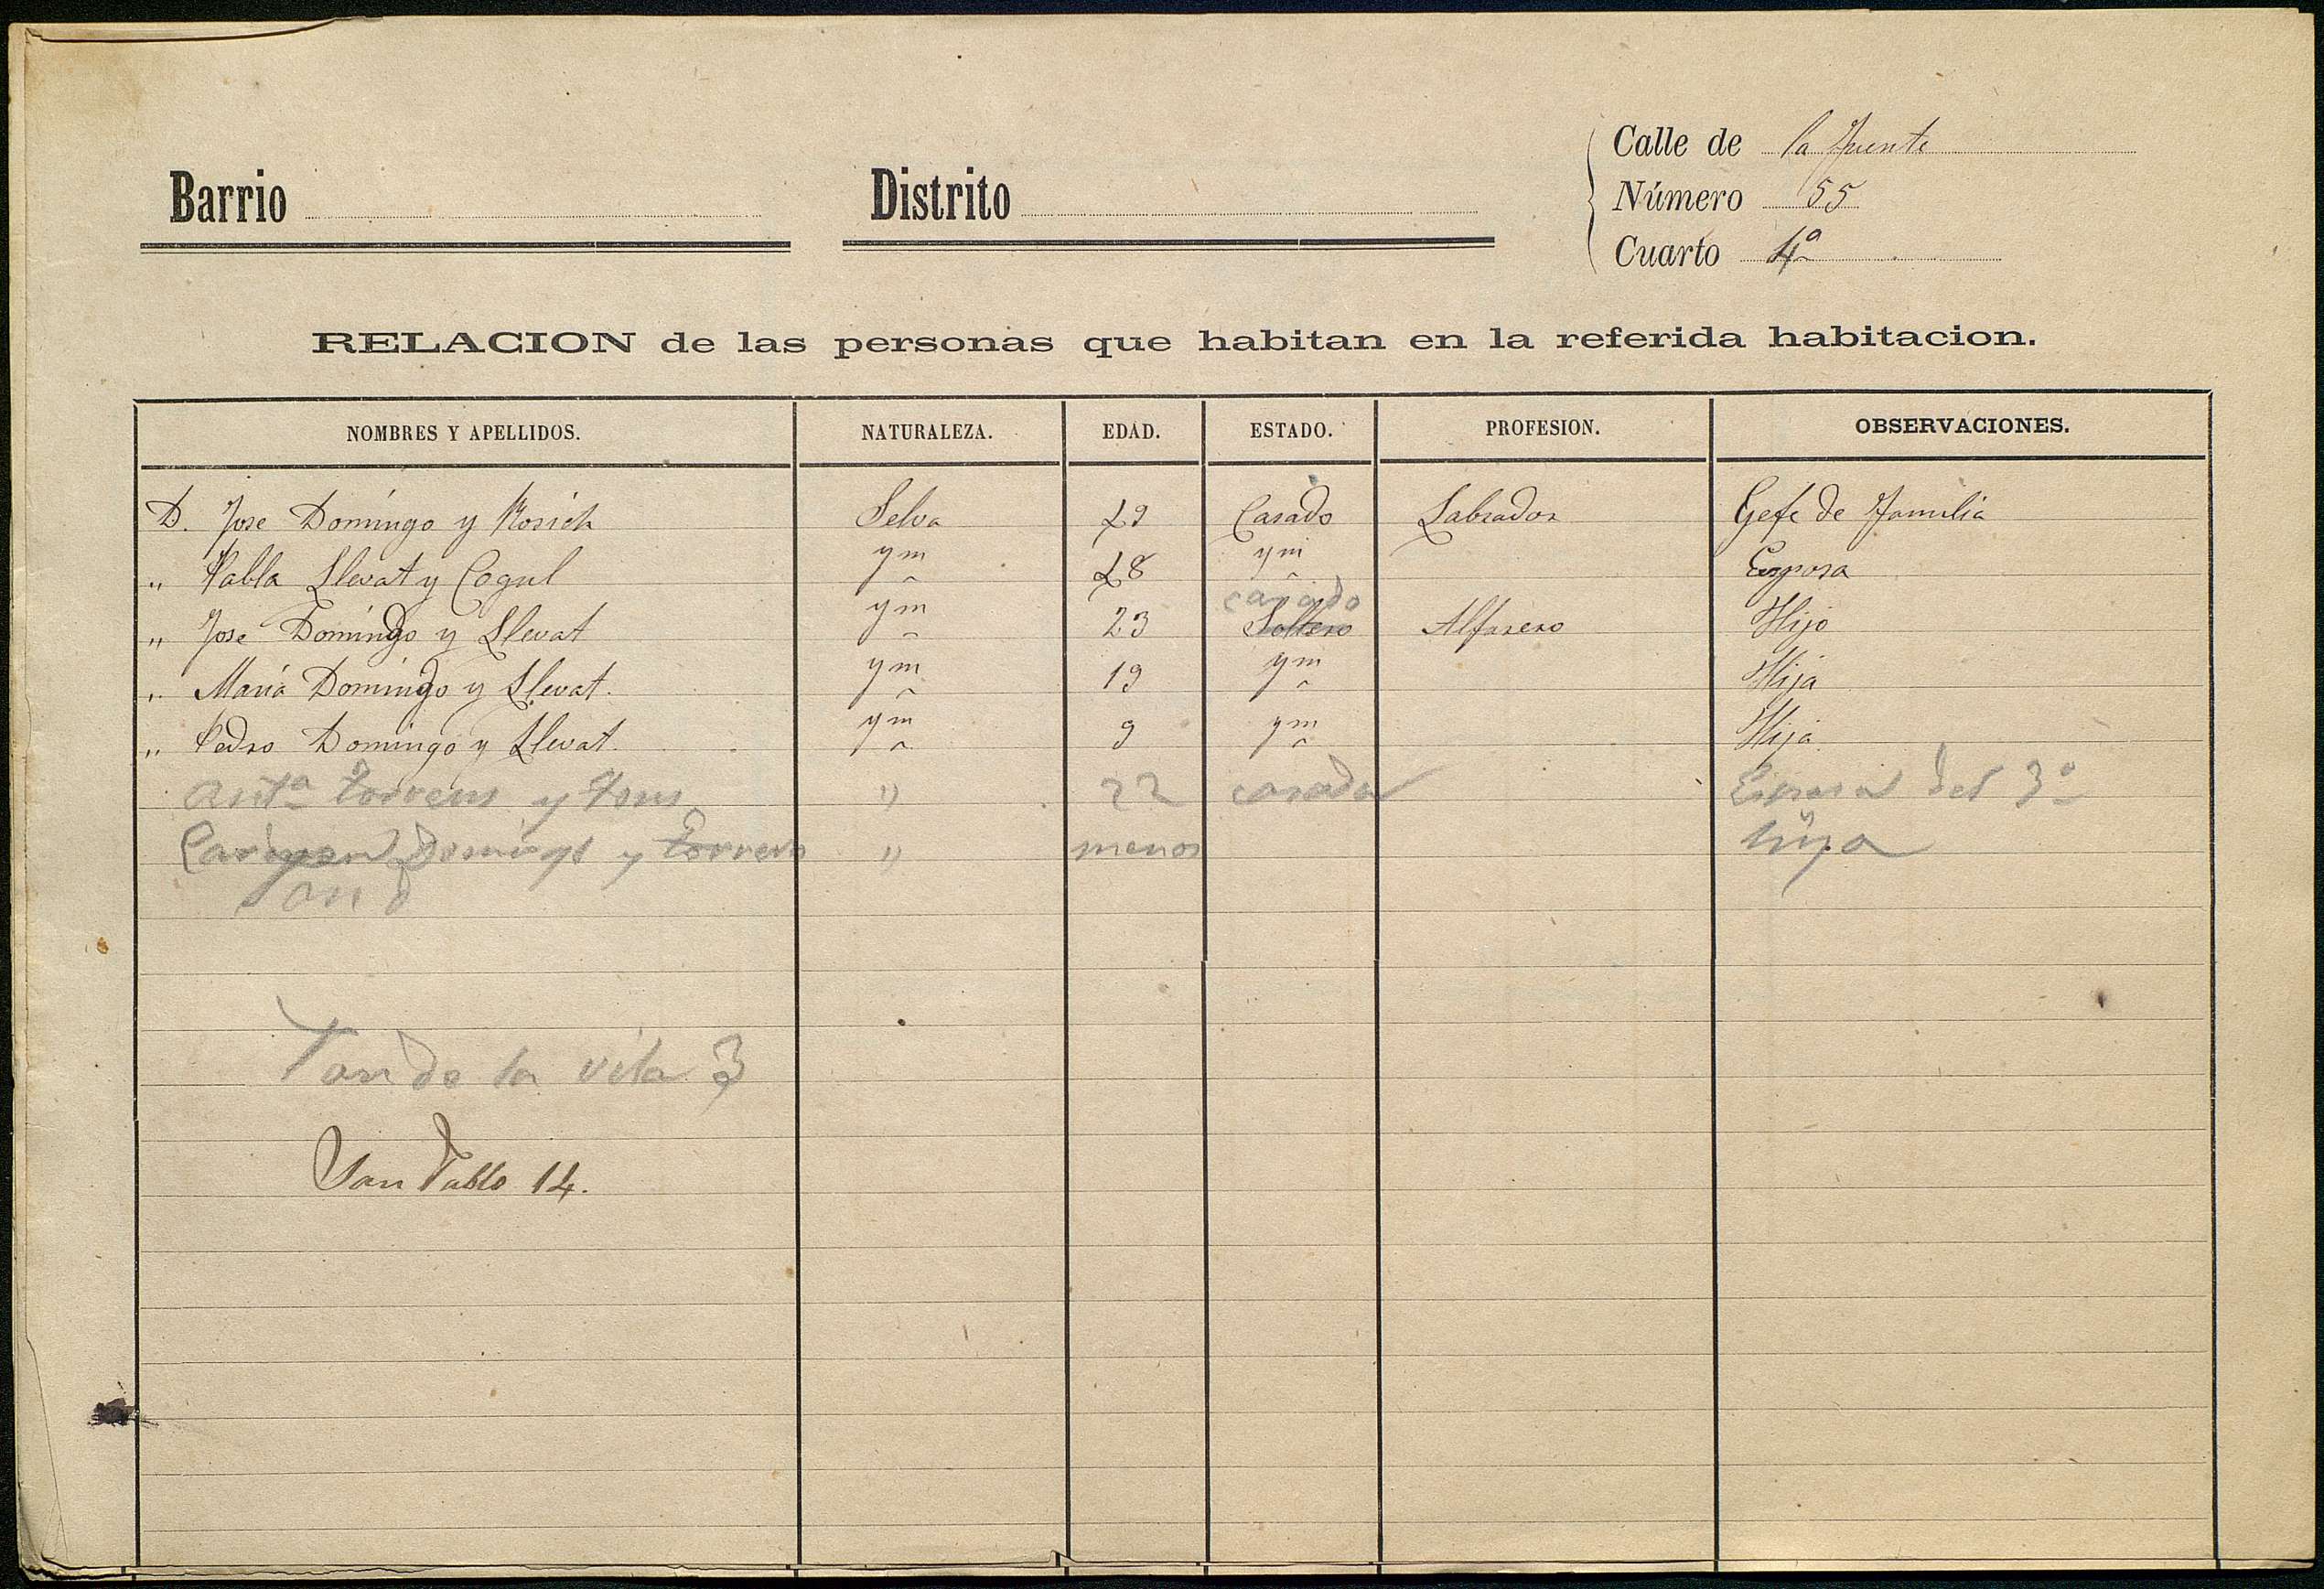 Barrio
Distrito
Calle de la Fuente
Número 55
Cuarto 4º
RELACION de las personas que habitan en la referida habitacion.
NOMBRES Y APELLIDOS. NATURALEZA. EDAD. ESTADO. PROFESION. OBSERVACIONES.
D. Jose Domingo y Rosich Selva 49 Casado Labrador Gefe de Familia
" Pabla Llevat y Cogul ym 48 ym Esposa
casado
" Jose Domingo y Llevat ym 23 Soltero Alfarero Hijo
" Maria Domingo y Llevat. ym 19 ym Hija
" Pedro Domingo y Llevat. ym 9 ym Hija
Antª Torrens y " 22 casada Esposa del 3º
Carmen Domingo y Torrens " menor hija
de la vila 3
San Pablo 14.